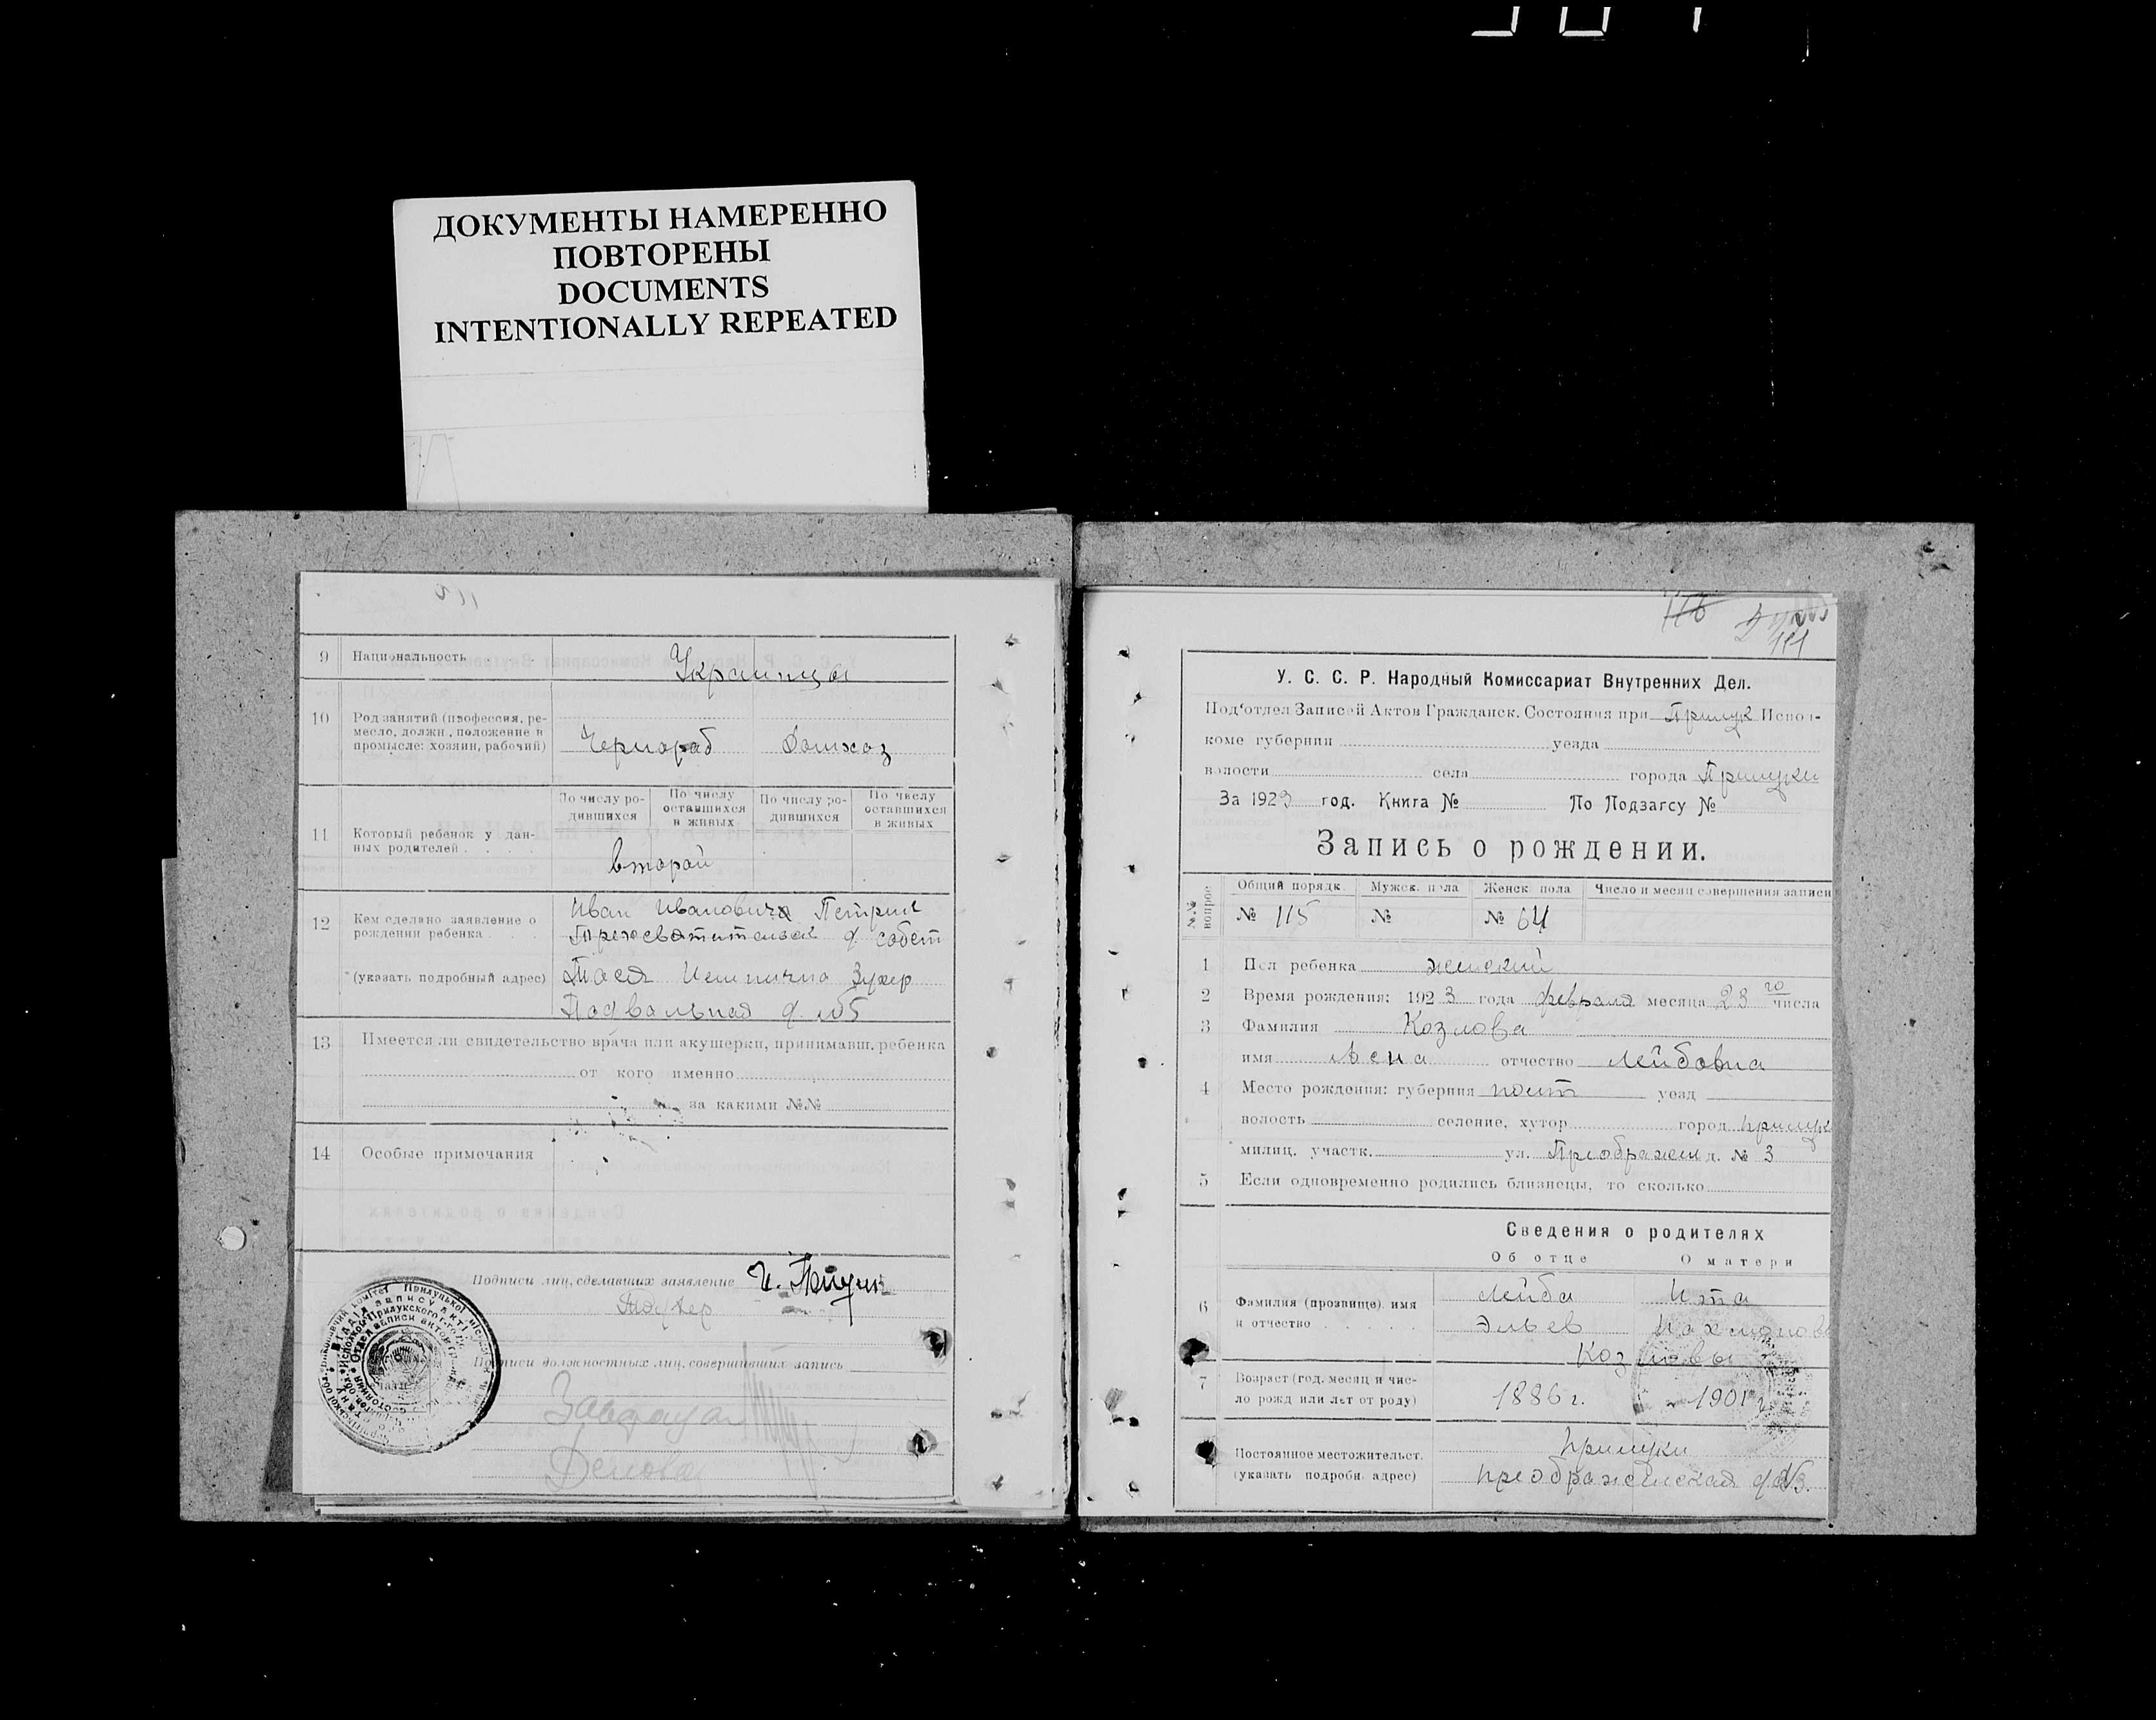 ДОКУМЕНТЫ НАМЕРЕННО
ПОВТОРЕНЫ
DOCUMENTS
INTENTIONALLY REPEATED
9 Национальность Украинцы
10 Род занятий (профессия, ре-
месло, должн., положение в
промысле: хозяин, рабочий) Чернораб Домхоз
По числу ро-
дившихся
По числу
оставшихся
в живых
По числу ро-
дившихся
По числу
оставшихся
в живых
11 Который ребенок у дан-
ных родителей второй
12 Кем сделано заявление о
рождении ребенка
(указать подробный адрес)
Иван Иванович
Трехсвятительск д. собст
Зухер
Подвальная
13 Имеется ли свидетельство врача или акушерки, принимавш. ребенка
от кого именно
за какими №№
14 Особые примечания
Подписи лиц, сделавших заявление
Подписи должностных лиц, совершивших запись
115
У. С. С. Р. Народный Комиссариат Внутренних Дел.
Под'отдел Записей Актов Гражданск. Состояния при Прилук Испол-
коме губернии уезда
волости села города Прилуки
За 1923 год. Книга № По Подзагсу №
Запись о рождении.
№№ вопрос
Общий порядк. Мужск. пола Женск. пола Число и месяц совершения записи
№ 115 № № 64
1 Пол ребенка женский
2 Время рождения: 1923 года февраля месяца 23 го числа
3 Фамилия Козлова
имя отчество Лейбовна
4 Место рождения: губерния Полт уезд
волость селение, хутор город Прилуки
милиц. участк. ул. Преображен д. № 3
5 Если одновременно родились близнецы, то сколько
Сведения о родителях
Об отце О матери
6 Фамилия (прозвище) имя
и отчество
Лейба Ита
Эльев
Козловы
7 Возраст (год, месяц и чис-
ло рожд или лет от роду) 1886 г. 1901 г.
Постоянное местожительст.
(указать подробн. адрес)
Прилуки
Преображенская д. № 3.